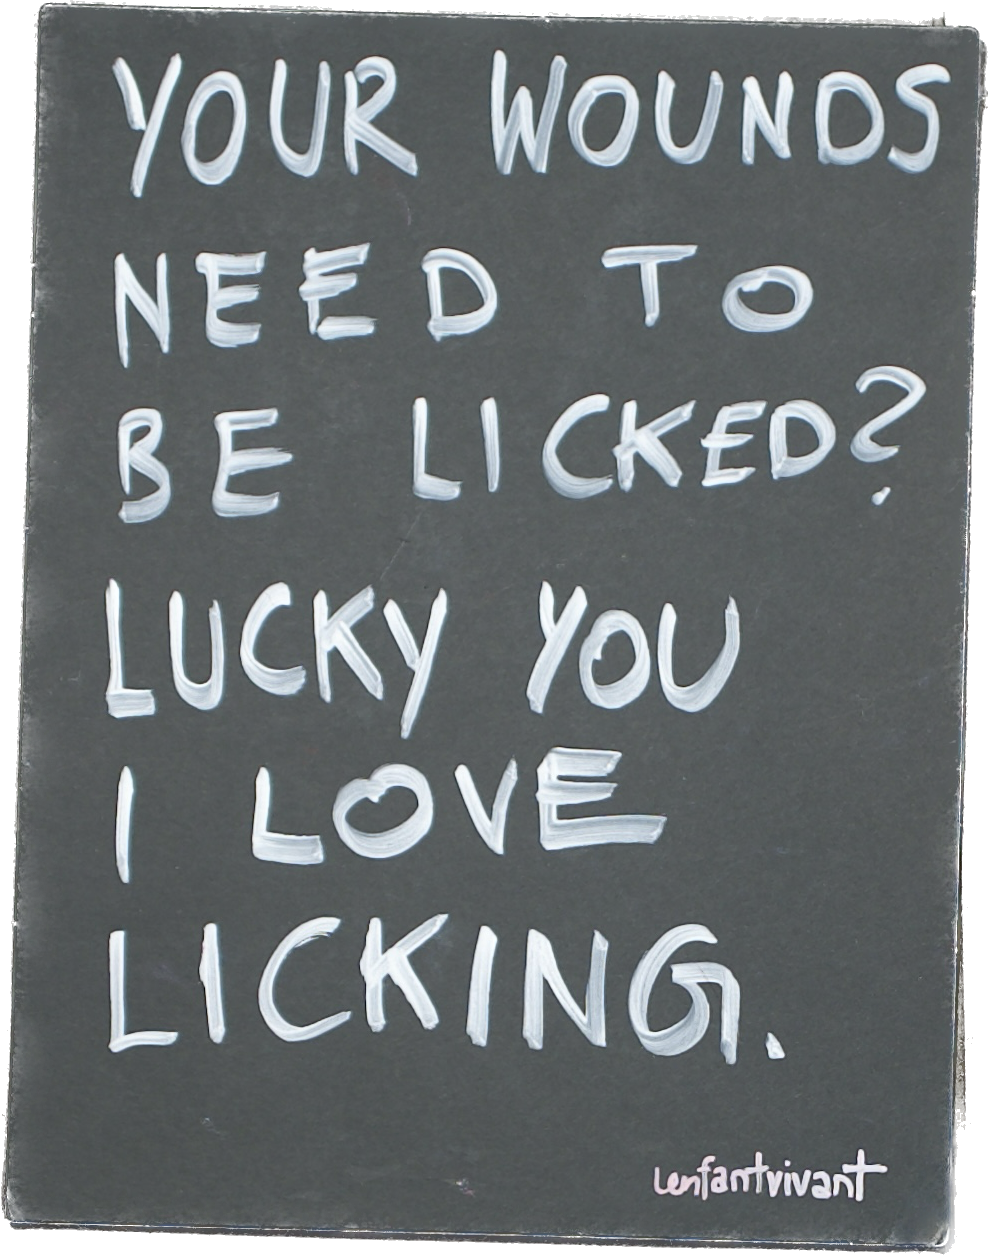 YOUR WOUNDS
NEED TO
BE LICKED?
LUCKY YOU
I LOVE
LICKING.
lenfantvivant